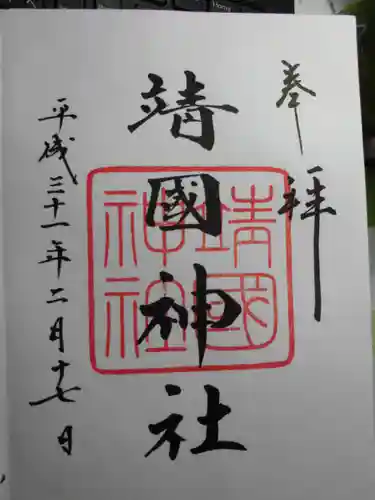 奉拝
靖國神社
靖國
神社
平成三十一年二月十七日
Home